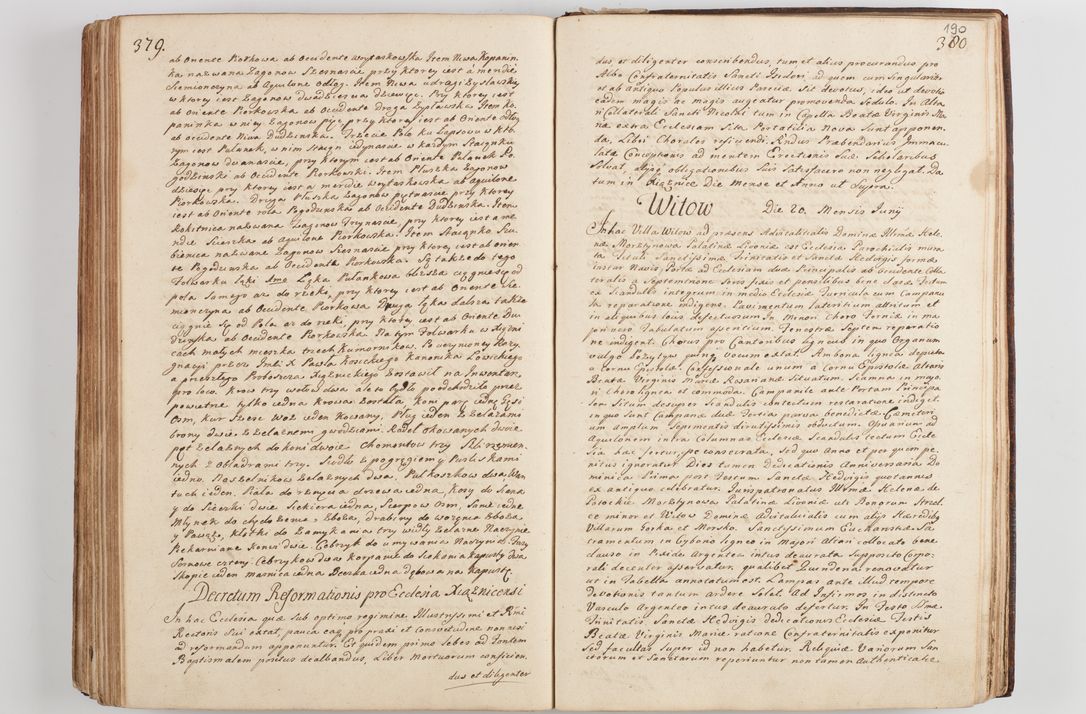 379.
ab Oriente Piorkowa ab Occidente Wytaskowska Item Niwa Kopanin,
ka nazwana Zagonow Szesnascie przy ktorey iest à meridie
Siemionczyna ab Aquilone Odłog. Item Niwa u drogi Zysławskiy
w ktorey iest Zagonow dwadziescia dziewięc. Przy ktorey iest
ab Oriente Piorkowska ab Occidente Droga Zysławska Item Ko,
paninka w niey Zagonow pięc, przy ktorey iest ab Oriente Odłog
ab Occidente Niwa Dudzinska. Trzecie Pole ku Łapsowu w kto,
rym iest Pulanek, w nim Staign iedynascie w kazdym Staignku
Zagonow dwanascie, przy ktorym iest ab Oriente Pulanek Po,
godzinski ab Occidente Piorkowski. Item Pluszka Zagonow
dziewięc przy ktorey iest a meridie Wytaskowska ab Aquilone
Piorkowska. Druga Pluszka Zagonow pętnascie przy ktorey
iest ab Oriente rola Pogodzinska ab Occidente Dudzinska. Item
Rokitnica nazwana Zagonow Trzynascie, przy ktorey iest a me
ridie Sierzka ab Aquilone Piorkowska. Item Staignko Szu,
bienica nazwane Zagonow Szesnascie przy ktorey iest ab orien,
te Pogodzinska ab Occidente Piorkowska. Są takze do tego
Folwarku Łąki 2mo Łąka Pulankowa bliszka ciągnąca się od
pola Samego az do rzeki, przy ktorey iest ab Oriente Sie,
mionczyna ab Occidente Piorkowa Druga Łąka dalsza takze
ciągnie się od Pola az do rzeki, przy ktorey iest ab Oriente Du,
dzinska ab Occidente Piorkowska. Na tym Folwarku w Xiężni,
cach małych mieszka trzech Kumornikow. Po uczynioney Rezy,
gnacyi przez Jmci X Pawła Kosickiego Kanonika Łowickiego
a przeszłego Proboszcza Xiążnickiego Zostawił na Inwentarz
pro loco. Krow trzy wołow dwa ale to bydło poodchodziło przez
powietrze tylko iedna Krowa Została, Koni parę iedną Gęsi
Osm, Kur szesc Woz ieden Kowany, Pług ieden z zelazami
brony dwie z zelaznemi gwozdziami. Radeł okowanych dwoie
pęt zelaznych do koni dwoie Chomontow trzy Szli rzemien,
nych z Obladrami trzy. Siodło z popręgiem y Pusliskami
iedno. Naszelnikow zelaznych dwa, Puł koszkow dwa, Wan,
tuch ieden. Piała do rznięcia drzewa iedna, Kosy do Siana
y do Sieczki dwie Siekiera iedna, Sierpow Osm, Sanie iedne
Młynek do chędozenia Zboza, drabiny do wozenia Zboza
y Pawąz, Klotki do Zamykania trzy widły zelazne Naczynie
Piekarniane Konwi dwie Cebrzyk do umywania Naczynia. Fasy
Sernowe cztery. Cebrzykow dwa Koryto do siekania kapusty dwa
Skopce ieden maśnica iedna Beczka iedna dębowa na Kapustę.
Decretum Reformationis pro Ecclesia Xiąznicensi
In hac Ecclesia quæ sub optimo regimine Illustrissimi et Rmi
Rectoris Sui extat, pauca eaq; pro praxi et consuetudine non nisi
ad reformandum apponuntur. Et quidem primo Labes ad Fontem
Baptismalem positus dealbandus, Liber Mortuorum conficien,
dus et diligenter
190
380
dus, et diligenter conscribendus, tum et alius procurandus pro
Albo Confraternitatis Sancti Isidori ad quem cum Singularis
et ab Antiquo Populus illius Parciæ Sit devotus, ideo ut devotio
eadem magis ac magis augeatur promovenda Sedulo. In Alta,
ri Collaterali Sancti Nicolai tum in Capella Beatæ Virginis Ma,
riæ extra Ecclesiam Sita Portatilia Nova Sunt apponen,
da, Libri Chorales reficiendi. Rndus Præbendarius Immacu,
latæ Conceptionis ad mentem Erectionis Suæ, Scholaribus
Solvat, alijsq; obligationibus Suis Satisfacere non negligat. Da
tum in Xięznice Die Mense et Anno ut Supra.
Witow Die 20. Mensis Junij
In hac Villa Witow ad præsens Advitalitatis Dominæ Illmæ Hele,
næ Morsztynowa Palatinæ Livoniæ est Ecclesia Parochialis mura
ta Tituli Sanctissimæ Trinitatis et Sanctæ Hedvigis formæ
instar Navis, Portæ ad Ecclesiam duæ Principalis ab Occidente Colla,
teralis a Septemtrione Seris fixis et pensilibus bene clausæ Tectum
ex Scandulis integrum in medio Ecclesiæ Turricula cum Campanu,
la reparatione indigens. Pavimentum lateritium attritum et
in aliquibus locis defectuosum. In Minori Choro Fornix in ma,
jori vero Tabulatum assentium. Fenestræ Septem reparatio
ne indigent. Chorus pro Cantoribus ligneus in quo Organum
vulgo Pozytyw quinq; vocum extat. Ambona lignea depicta
a Cornu Epistolæ. Confessionale unum a Cornu Epistolæ Altaris
Beatæ Virginis Mariæ Rosarianæ Situatum. Scamna in majo,
ri Choro lignea et commoda. Campanile ante Portam Principa
lem Situm desuper Scandulis contectum restaratione indiget,
in quo Sunt Campanæ duæ Tertia parva benedictæ Cæmiteri,
um amplum Sepimentis dirutissimis obductum. Ossuarium ad
Aquilonem infra Columnas Ecclesiæ Scandulis tectum Eccle
sia hæc fertur, spe consecrata, sed quo Anno et per quem pe,
nitus ignoratur. Dies tamen Dedicationis Anniversaria Do,
menica Primo post Festum Sanctæ Hedvigis quotannis
ex antiquo celebratur. Juris patronatus Illmæ Helenæ de
Potockie Morsztynowa Palatinæ Livoniæ uti Bonorum Strzel,
ce minor et Witow Dominæ Advitalitatis cum alijs Hæredibus
Villarum Gorka et Morsko. Sanctissimum Eucharistiæ Sa,
cramentum in Cyborio ligneo in Majori Altari collocato bene
clauso in Pixide Argentea intus deaurata Supposito Corpo,
rali decenter asservatur, qualibet Quindena renovatur
ut in Tabella annotatum est. Lampas ante illud tempore
devotionis tantum ardere Solet. Ad Infirmos indistincto
Vasculo Argenteo intus deaurato defertur. In Festo SSmæ
Trinitatis, Sanctæ Hedvigis dedicationis Ecclesiæ Festis
Beatæ Virginis Mariæ ratione Confraternitatis exponitur
sed facultas Super id non habetur. Reliquiæ Variorum San
ctorum et Sanctarum reperiuntur non tamen authenticatæ.